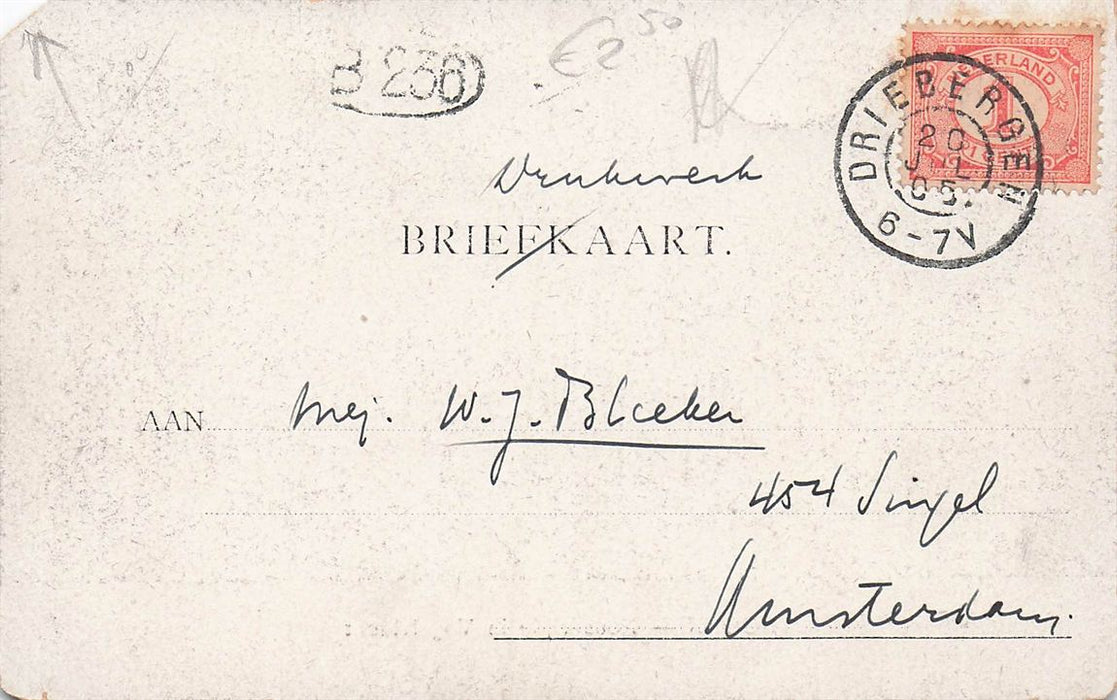 B 236
€2 50
NEDERLAND
1
DRIEBERGEN
20
JUL
05.
6-7V
Drukwerk
BRIEFKAART.
AAN
Mej. W. J. Bleeker
454 Singel
Amsterdam.